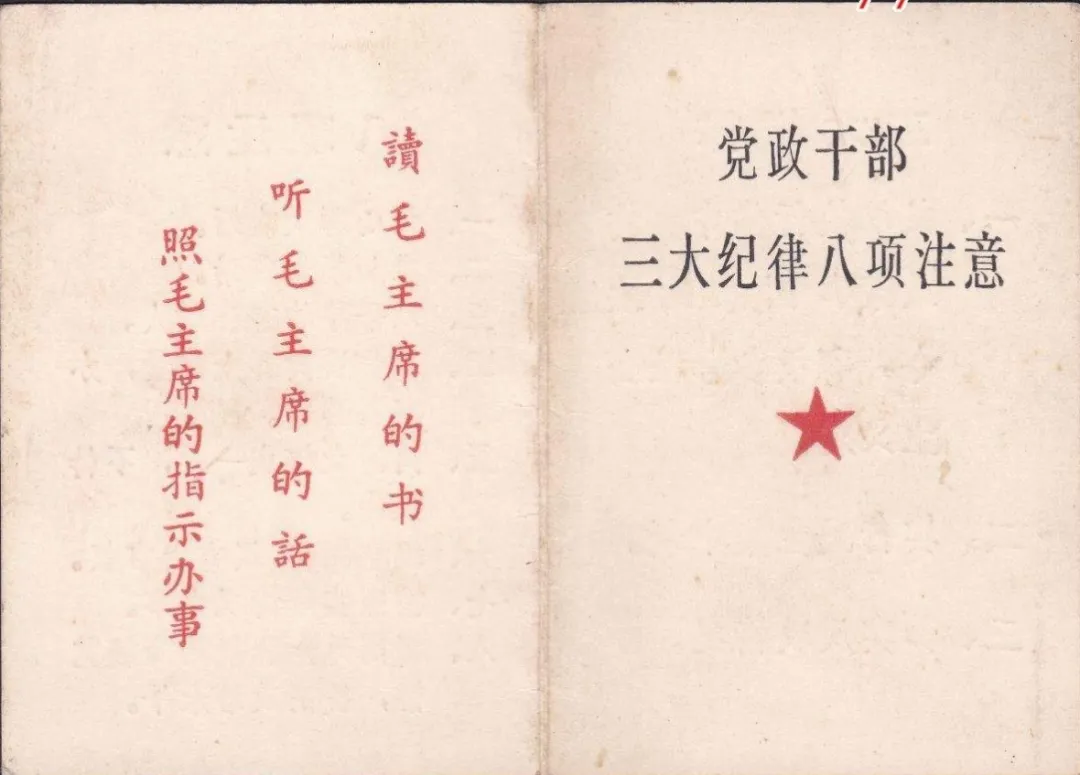 党政干部
三大纪律八项注意
讀毛主席的书
听毛主席的話
照毛主席的指示办事